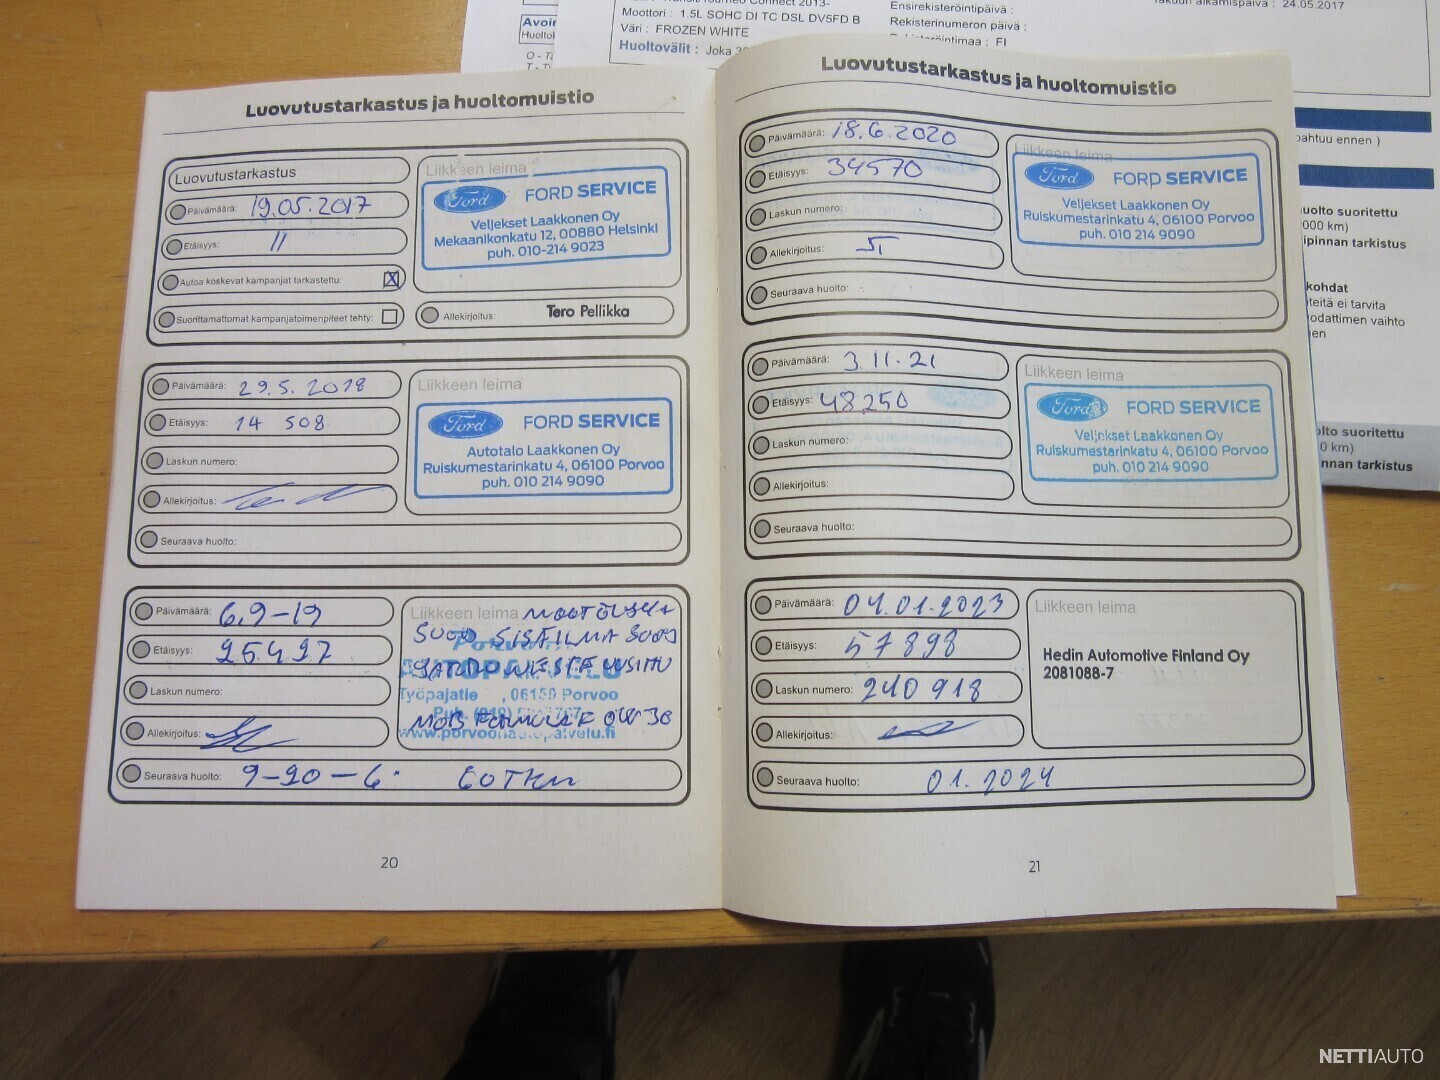 Transit Tourneo Connect 2013-
Moottori : 1.5L SOHC DI TC DSL DV5FD B
Väri : FROZEN WHITE
Huoltovälit : Joka
Ensirekisteröintipäivä :
Rekisterinumeron päivä :
FI
Takuun alkamispäivä : 24.05.2017
Luovutustarkastus ja huoltomuistio
Luovutustarkastus
Päivämäärä: 19.05.2017
Etäisyys: 11
Autoa koskevat kampanjat tarkastettu: X
Suorittamattomat kampanjatoimenpiteet tehty:
Liikkeen leima
Ford FORD SERVICE
Veljekset Laakkonen Oy
Mekaanikonkatu 12, 00880 Helsinki
puh. 010-214 9023
Allekirjoitus: Tero Pellikka
Päivämäärä: 29.5.2018
Etäisyys: 14 508
Laskun numero:
Allekirjoitus:
Seuraava huolto:
Liikkeen leima
Ford FORD SERVICE
Autotalo Laakkonen Oy
Ruiskumestarinkatu 4, 06100 Porvoo
puh. 010 214 9090
Päivämäärä: 6.9-19
Etäisyys: 25427
Laskun numero:
Allekirjoitus:
Seuraava huolto: 9-20-6. 60TKM
Liikkeen leima
SUOD SISÄILMA SUOD
AUTOPALVELU
Työpajatie , 06150 Porvoo
www.porvoonautopalvelu.fi
20
Luovutustarkastus ja huoltomuistio
Päivämäärä: 18.6.2020
Etäisyys: 34570
Laskun numero:
Allekirjoitus:
Seuraava huolto:
Liikkeen leima
Ford FORD SERVICE
Veljekset Laakkonen Oy
Ruiskumestarinkatu 4, 06100 Porvoo
puh. 010 214 9090
Päivämäärä: 3.11.21
Etäisyys: 48250
Laskun numero:
Allekirjoitus:
Seuraava huolto:
Liikkeen leima
Ford FORD SERVICE
Veljekset Laakkonen Oy
Ruiskumestarinkatu 4, 06100 Porvoo
puh. 010 214 9090
Päivämäärä: 04.01.2023
Etäisyys: 57898
Laskun numero: 240 918
Allekirjoitus:
Seuraava huolto: 01.2024
Liikkeen leima
Hedin Automotive Finland Oy
2081088-7
21
ennen )
suoritettu
tarkistus
kohdat
ei tarvita
vaihto
suoritettu
tarkistus
NETTIAUTO